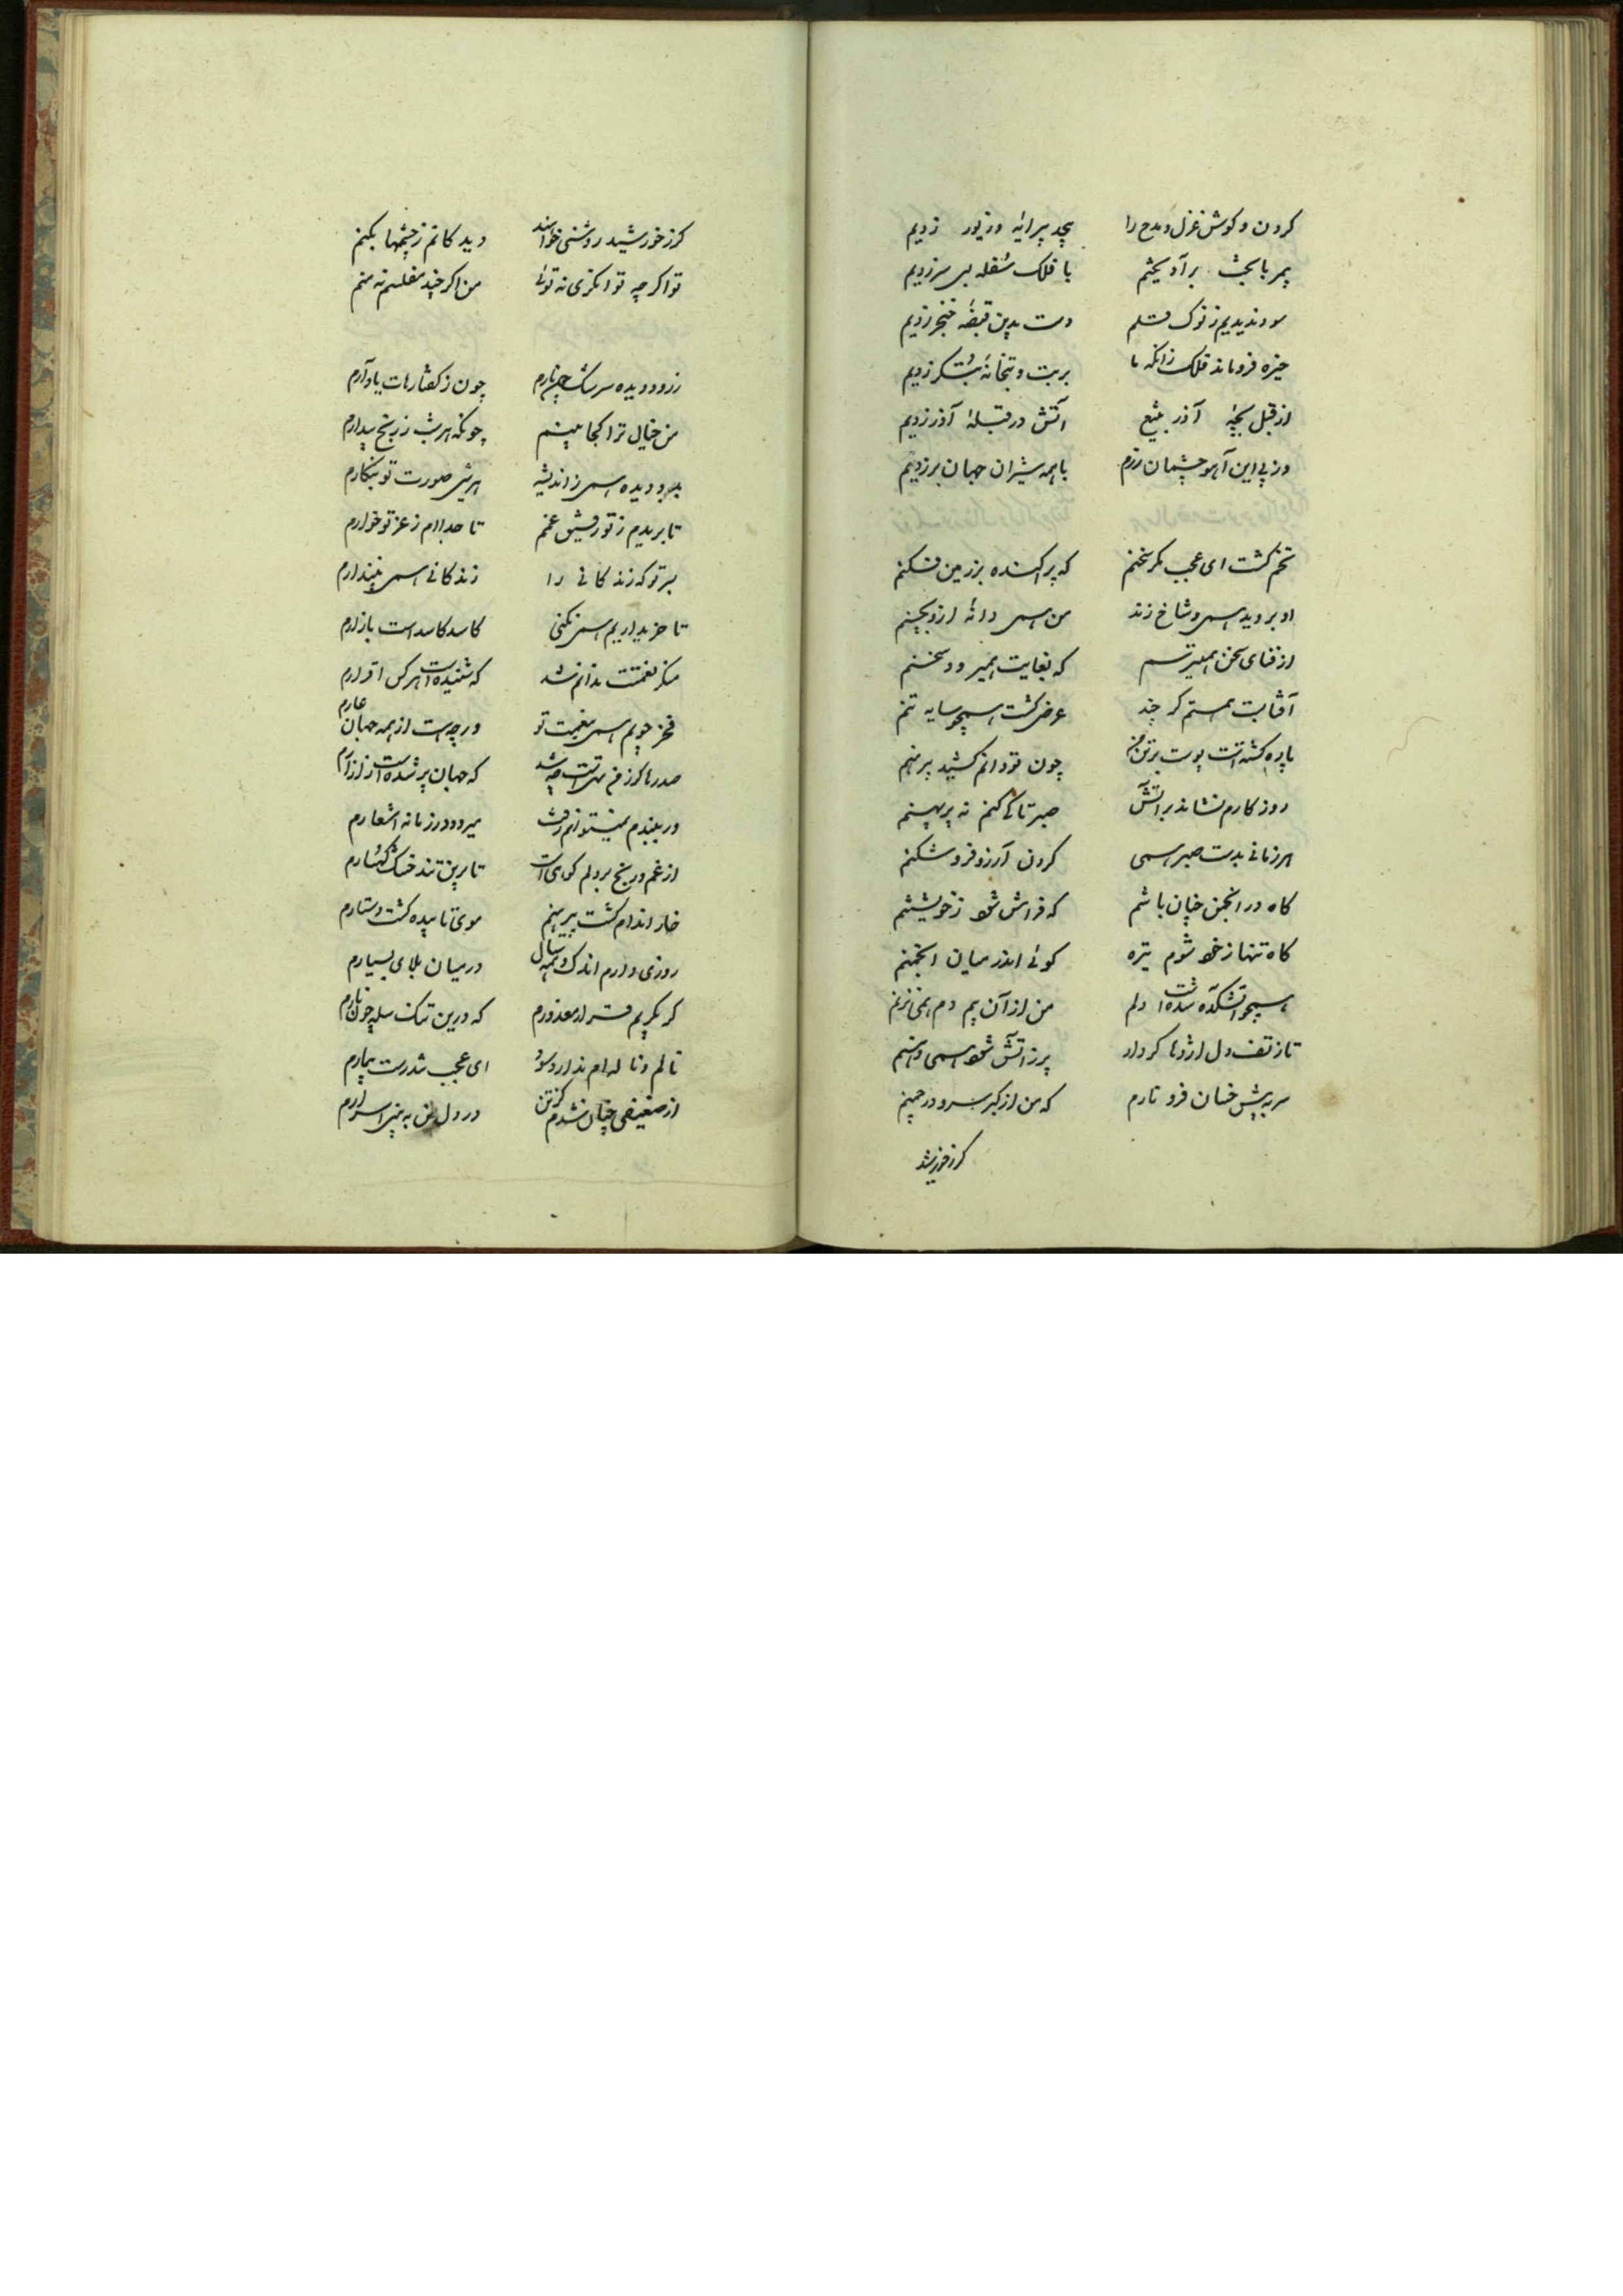 کردن و کوش غزل و مدح را بیحد پیرایه و زیور زدیم
پس با بخت برآویختیم با فلک سفله بسی سر زدیم
سود ندیدیم ز نوک قلم دست بدین قبضه خنجر زدیم
خیره فروماند فلک زانکه ما بربت و بتخانه بتگر زدیم
از قبل بچه آذر بتیغ آتش در قبله آذر زدیم
وز پی این آهو چشمان رزم باهمه شیران جهان بر زدیم
تخم کشت ای عجب مکر سخنم که پراکنده بر زمین فکنم
او بروید همی و شاخ زند من همی دانه ازو بچینم
از فنای سخن همیترسم که بغایت همیرود سخنم
آفتابست همتم کر چند عرض کشت همچو سایه تنم
پاره کشتست پوست بر تن من چون توانم کشید پیرهنم
روزکارم نشاند بر آتش صبر تا کی کنم نه برهمنم
هر زمانی بدست صبر همی کردن آرزو فرو شکنم
کاه در انجمن چنان باشم که فراموش شود ز خویشتنم
کاه تنها ز خود شوم تیره کوئی اندر میان انجمنم
همچو آتشکده شدست دلم من از آن بیم دم همی نزنم
تا ز تف دل اژدها کردار پر ز آتش شود همی دهنم
سر به پیش خسان فرو نارم که من از کبر سرو در چمنم
کر ز خورشید
کر ز خورشید روشنی خواهند دیدکانم ز چشمها بکنم
تو اکر چه توانکری نه توئی من اکر چند مفلسم نه منم
ز دو دیده سرشک چون نارم چون ز کفتارهات یاد آرم
من خیال ترا کجا بینم چونکه هر شب ز رنج بیدارم
بر دو دیده همی ز اندیشه هر شبی صورت تو بنکارم
تا بریدم ز تو رفیق غمم تا جداام ز عز تو خوارم
بر تو که زندکانی را زندکانی همی نپندارم
تا خریداریم همی نکنی کاسد کاسدست بازارم
منکر نعمتت ندانم شد که شنیدست هر کس اقرارم
فخر جویم همی بنعمت تو ورچه هست از همه جهان عارم
صدرها کر ز من تهیست چه شد که جهان پر شدست از آثارم
ور ببندم نمیتوانم رفت میرود در زمانه اشعارم
از غم و رنج بر دلم کوهیست تا برین تند خشک کهسارم
خار اندام کشت پیرهنم موی تا سیده کشت دستارم
روزی دارم اندک و همه سال در میان بلای بسیارم
کر بکریم قرار معذورم که درین تنک سله چون مارم
نالم و ناله ام ندارد سود ای عجب تندرست بیمارم
از ضعیفی چنان شدم کز تن در دل من به بینی اسرارم